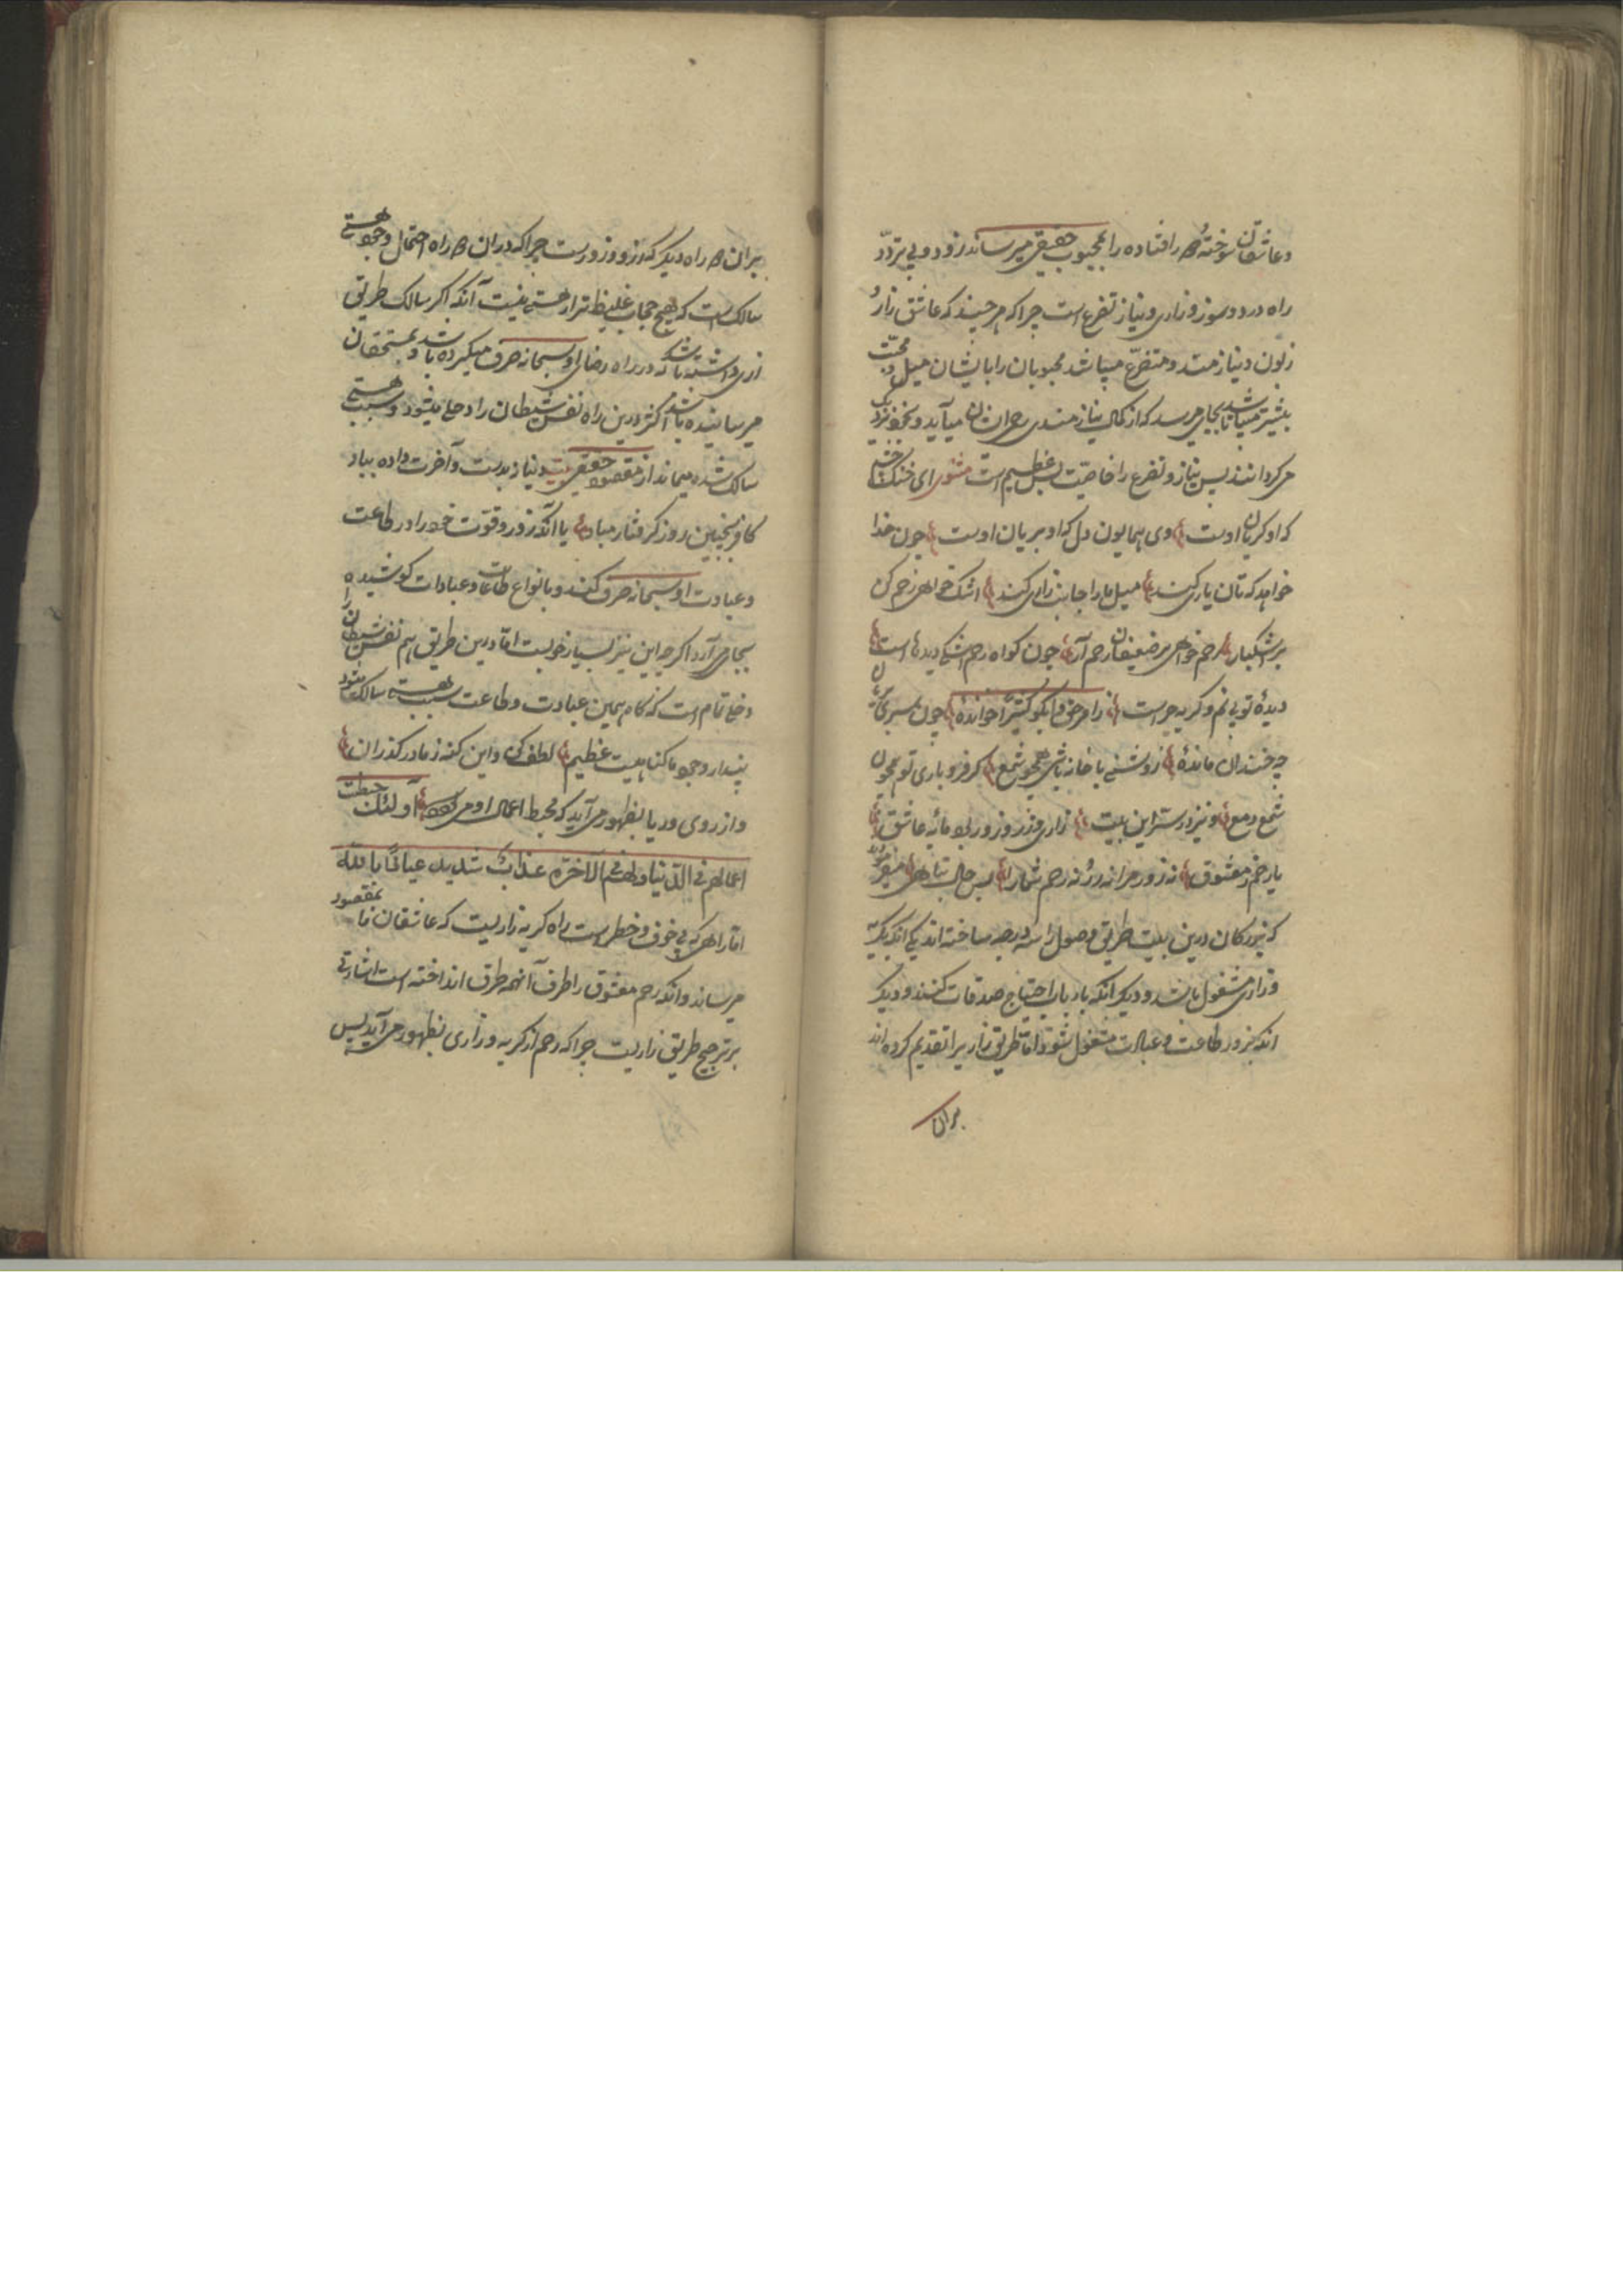 وعاشقان سوختهٔ هر را افتاده را بمحبوب حقیقی میرساند زود و بی تردّد
راه درد و سوز و زاری و نیاز و تضرع است چرا که هر چند که عاشق زار و
زبون و نیازمند و متضرّع میباشد محبوبان را با ایشان میل و محبّت
بیشتر میباشد تا بجای میرسد که از کمال نیازمندی رحم ایشان میآید و بخود نزدیک
میگردانند پس نیاز و تضرع را خاصیت بس عظیم است مثنوی ای خنک چشمی
که او گریان اوست وی همایون دل که او بریان اوست چون خدا
خواهد که تان یاری کند میل ما را جانب زاری کند اشک خواهی رحم کن
بر اشکبار رحم خواهی بر ضعیفان رحم آر چون گواه رحم اشک دیدهاست
دیدهٔ تو بی نم و گریه چراست ز امر حق وابکوا کثیرًا خواندهٔ چون سر بریان
چه خندان ماندهٔ روشنی خانه باشی همچو شمع گر فرو باری تو همچون
شمع دمع و نیز درستر این بیت زاری و زر و زور بود مایهٔ عاشق
یا رحم ز معشوق نه زور مرا نه زر نه رحم شما را بس حال تباهی میفرمود
که بزرگان درین بیت طریق وصول را سه درجه ساخته اند یکی آنکه بگریه
و زاری مشغول باشند و دیگر آنکه بارباب احتیاج صدقات کنند و دیگر
آنکه بزور طاعت و عبادت مشغول شوند اما طریق زاری را تقدیم کرده اند
بران
بران هر راه دیگر که زر و زورست چرا که در ان هر راه احتمال وجود هستی
سالک است که هیچ حجاب غلیظ تر از هستی نیست آنکه اگر سالک طریق
زری داشته باشد که در راه رضای او سبحانه صرف میکرده باشد و بمستحقان
میرسانیده باشد اکثر درین راه نفس شیطان را دخل میشود و سبب هستی
سالک شده میماند از مقصود حقیقی بیت دنیا ز بدست و آخرت داده بباد
کافر بچنین روز گرفتار مباد یا آنکه زور و قوّت خود را در طاعت
و عبادت او سبحانه صرف کنند و بانواع طاعات و عبادات کوشیده
بجا می آرد اگر چه این نیز بسیار خوبست امّا درین طریق هم نفس شیطان را
دخل تمام است که گاه همین عبادت و طاعت سبب هستی سالک میشود
پندار وجود ما گناهیست عظیم لطفی کن و این گنه ز ما در گذران
و از روی و ریا بظهور می آید که محبط اعمال او می شود اولئک حبطت
اعمالهم فی الدّنیا ولهم فی الآخرة عذابٌ شدید عیاذًا بالله
امّا راهی که بی خوف و خطر است راه گریه و زاریست که عاشقان را بمقصود
میرساند و آنکه رحم معشوق را طرف آنهمه طرق انداخته است اشارتی
بر ترجیح طریق زاریست چرا که رحم از گریه و زاری بظهور می آید پس